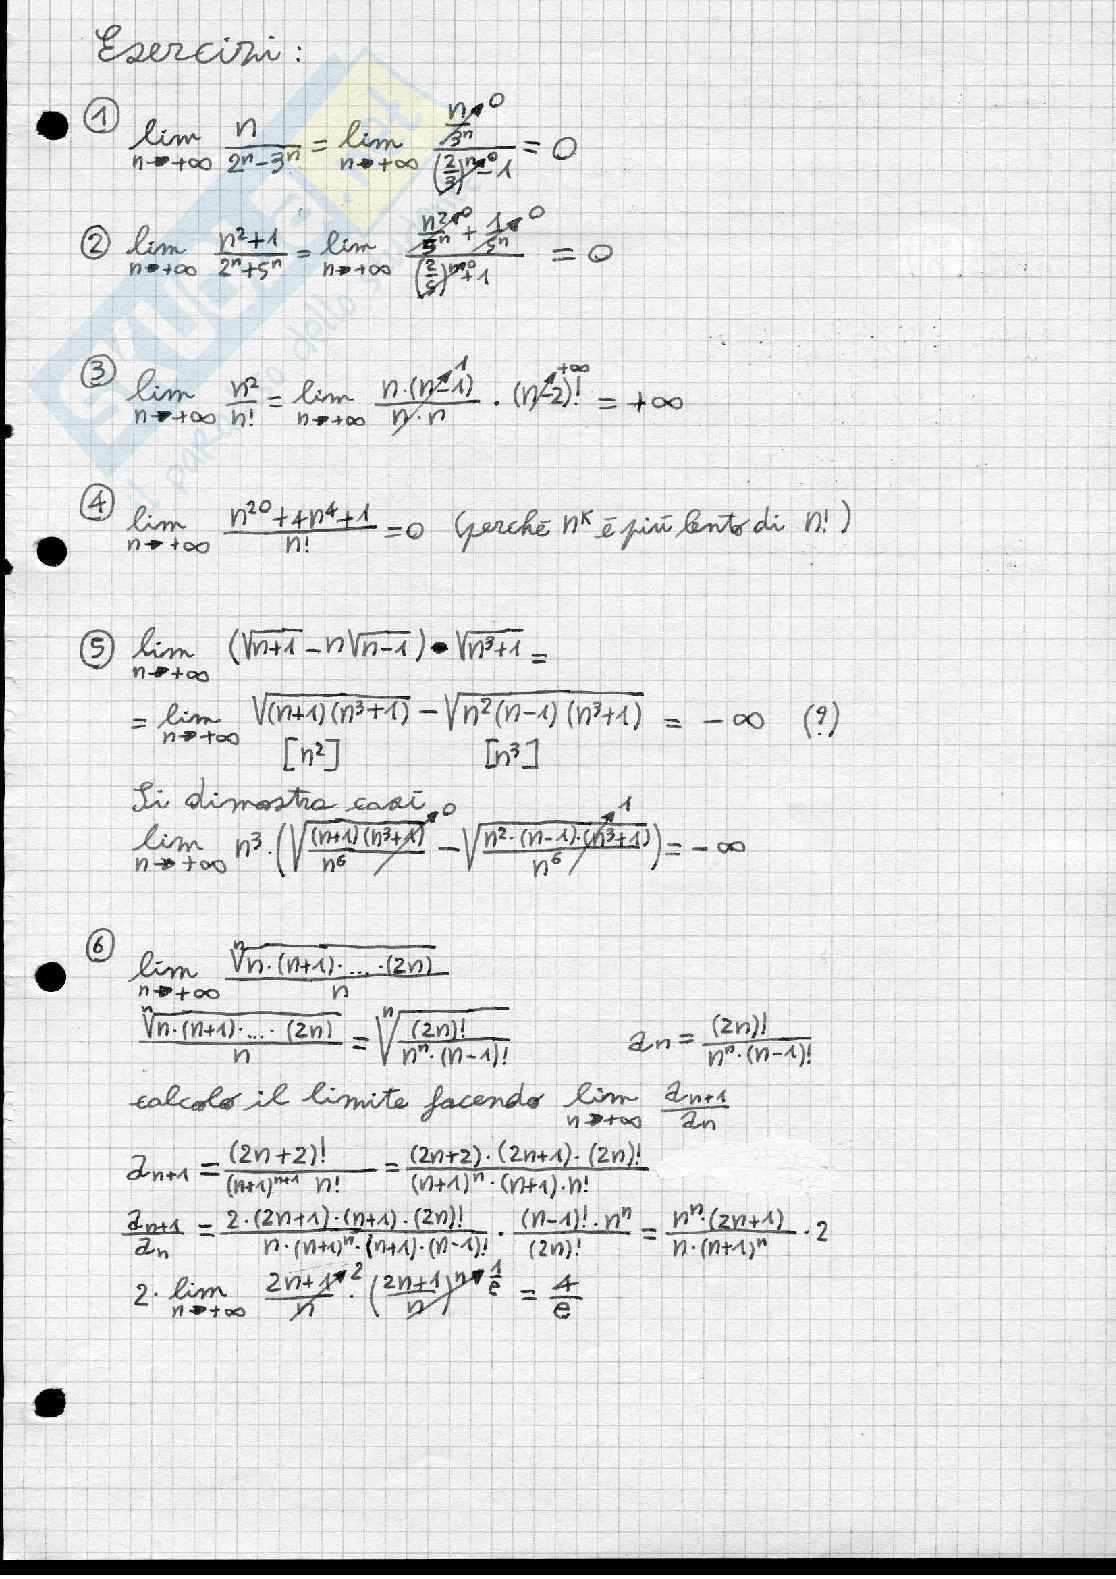 Esercizi:
① lim n→+∞ n/(2ⁿ-3ⁿ) = lim n→+∞ (n/3ⁿ →0)/((2/3)ⁿ →0 - 1) = 0
② lim n→+∞ (n²+1)/(2ⁿ+5ⁿ) = lim n→+∞ (n²/5ⁿ →0 + 1/5ⁿ →0)/((2/5)ⁿ →0 + 1) = 0
③ lim n→+∞ n²/n! = lim n→+∞ (n·(n-1))/(n·n) →1 · (n-2)! →+∞ = +∞
④ lim n→+∞ (n²⁰+4n⁴+1)/n! = 0 (perché nᴷ è più lento di n!)
⑤ lim n→+∞ (√(n+1) - n√(n-1)) • √(n³+1) =
= lim n→+∞ √((n+1)(n³+1)) - √(n²(n-1)(n³+1)) = -∞ (?)
[n²] [n³]
Si dimostra così
lim n→+∞ n³·(√((n+1)(n³+1)/n⁶) →0 - √(n²·(n-1)·(n³+1)/n⁶) →1) = -∞
⑥ lim n→+∞ ⁿ√(n·(n+1)·...·(2n))/n
ⁿ√(n·(n+1)·...·(2n))/n = ⁿ√((2n)!/(nⁿ·(n-1)!)) aₙ = (2n)!/(nⁿ·(n-1)!)
calcolo il limite facendo lim n→+∞ aₙ₊₁/aₙ
aₙ₊₁ = (2n+2)!/((n+1)ⁿ⁺¹ n!) = ((2n+2)·(2n+1)·(2n)!)/((n+1)ⁿ·(n+1)·n!)
aₙ₊₁/aₙ = (2·(2n+1)·(n+1)·(2n)!)/(n·(n+1)ⁿ·(n+1)·(n-1)!) · ((n-1)!·nⁿ)/(2n)! = (nⁿ·(2n+1))/(n·(n+1)ⁿ) · 2
2· lim n→+∞ (2n+1)/n →2 · ((2n+1)/n)ⁿ →1/e = 4/e